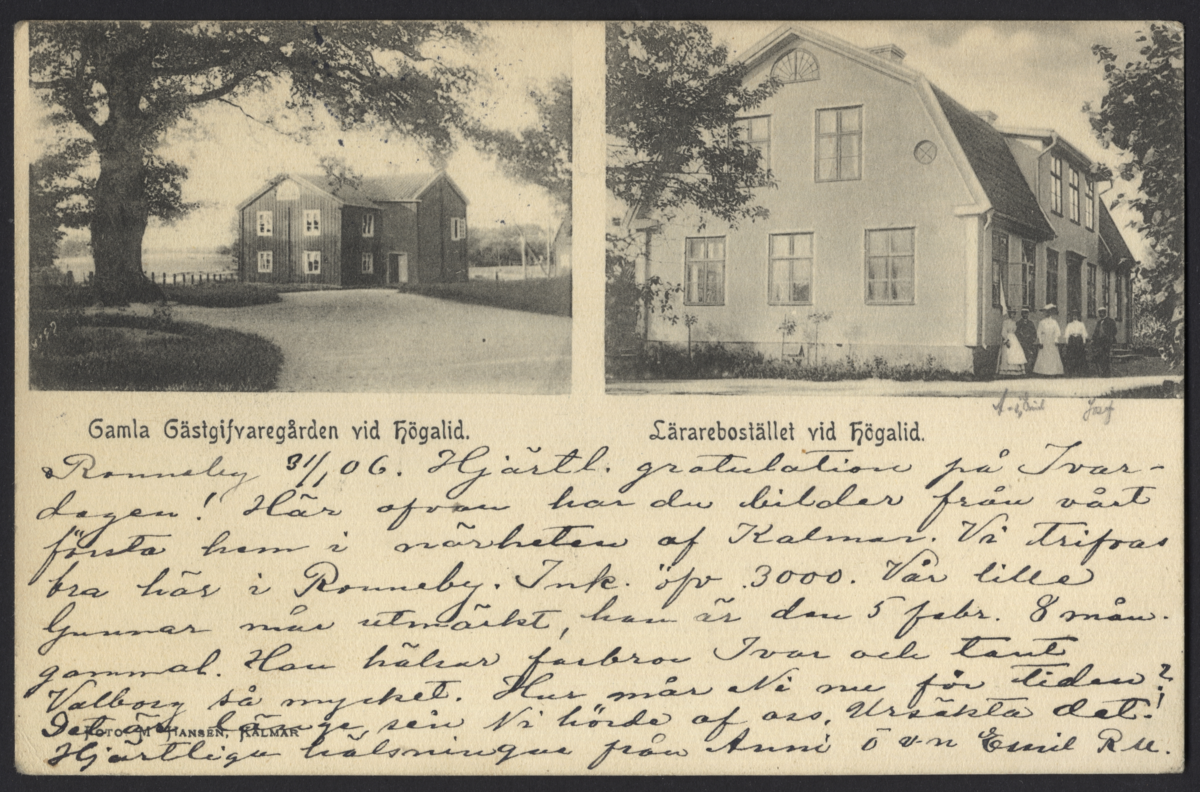 Gamla Gästgifvaregården vid Högalid.
Lärarebostället vid Högalid.
Josef
Ronneby 31/1 06. Hjärtl. gratulation på Ivar-
dagen! Här ofvan har du bilder från vårt
första hem i närheten af Kalmar. Vi trifvas
bra här i Ronneby. Ink. öfv. 3000. Vår lille
Gunnar mår utmärkt, han är den 5 febr. 8 mån.
gammal. Han hälsar farbror Ivar och tant
Valborg så mycket. Hur mår Ni nu för tiden?
Det är länge sen Ni hörde af oss. Ursäkta det!
FOTO. M. HANSEN, KALMAR
Hjärtliga hälsningar från Anni o v.n Emil